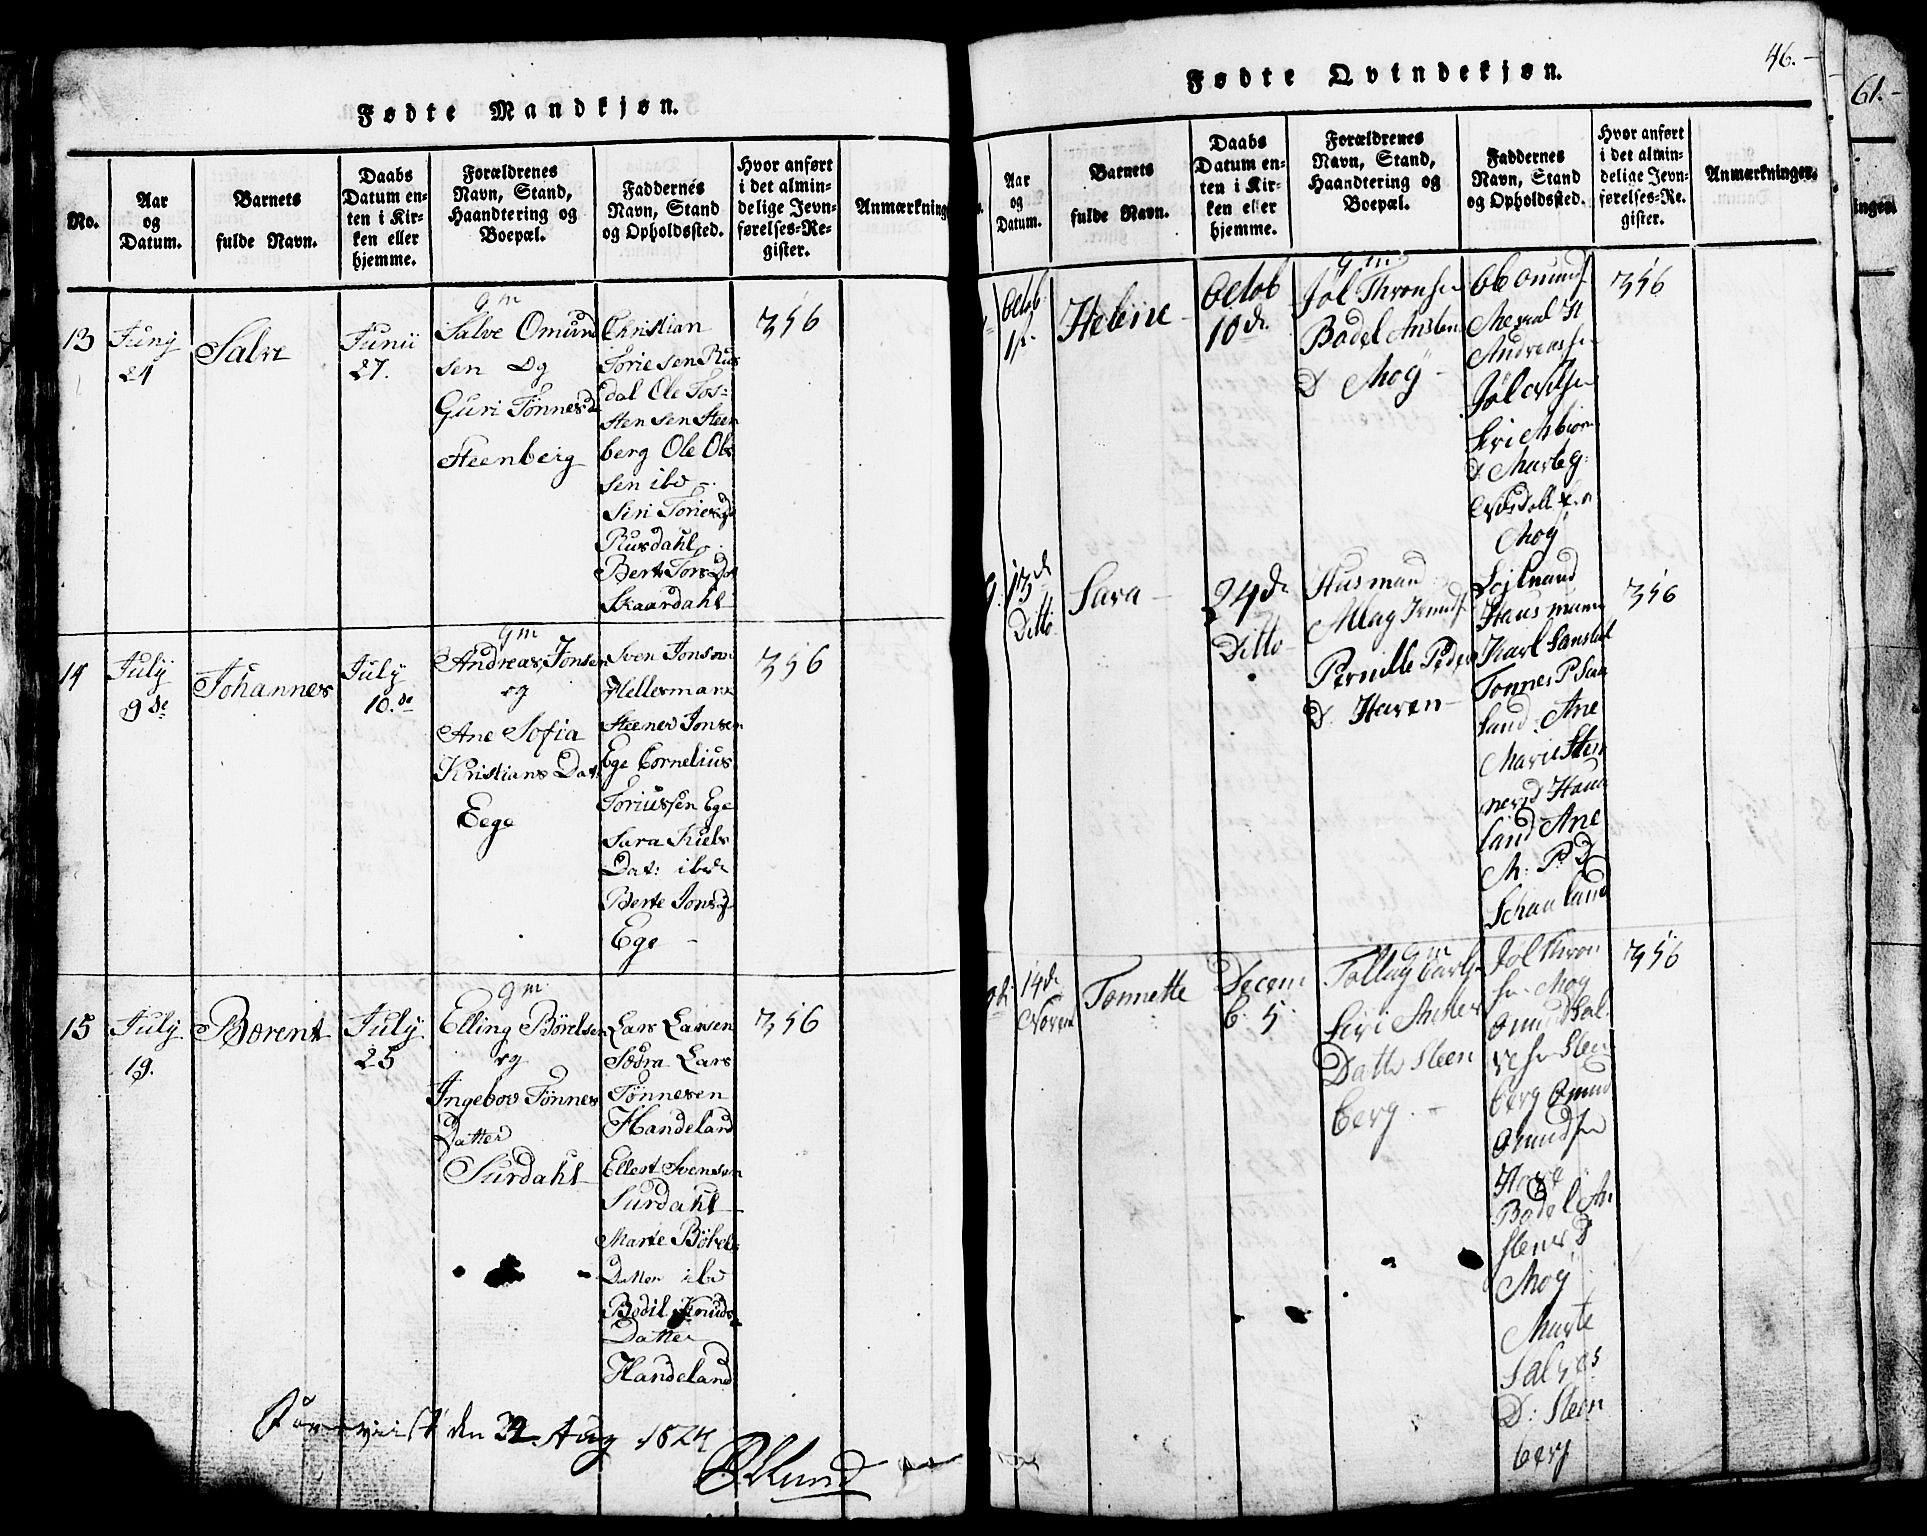 Fødte Mandkjøn.
No.
Aar
og
Datum.
Barnets
fulde Navn.
Daabs
Datum en-
ten i Kir-
ken eller
hjemme.
Forældrenes
Navn, Stand,
Haandtering og
Boepæl.
Faddernes
Navn, Stand
og Opholdssted.
Hvor anført
i det almin-
delige Jevn-
førelses-Re-
gister.
Anmærkning
13
Junj
24
Salve
Junii
27.
gm
Salve Omund
sen Og
Guri Tønnesd
Steenberg
Christian
Toriesen Rus
dal Ole Tos-
stensen Steen
berg Ole Ols
sen ibd
Siri Toriesd
Rusdahl
Berte Torsdat
Skaardahl
356
14
July
9 de
Johannes
July
10. de
gm
Andreas Jonsen
og
Ane Sofia
Kristians Dat
Eege
Sven Jonsen
Hellesmark
Steener Jonsen
Ege Cornelius
Toriussen Ege
Sara Kiels
Dat: ibd
Berte Jonsd
Ege
356
15
July
19.
Børent
July
25
gm
Elling Börelsen
og
Ingebor Tönnes
Datter
Surdahl
Lars Larsen
Sødra Lars
Tönnesen
Handeland
Ellert Svensen
Surdahl
Marte Böbels
Datter ibd
Bodil Knuds
Datter
Handeland
356
den Aug 1824
Fødte Qvindekjøn.
46.
Aar
og
Datum.
Barnets
fulde Navn.
Daabs
Datum en-
ten i Kir-
ken eller
hjemme.
Forældrenes
Navn, Stand,
Haandtering og
Boepæl.
Faddernes
Navn, Stand
og Opholdssted.
Hvor anført
i det almin-
delige Jevn-
førelses-Re-
gister.
Anmærkninger.
Octob
1st.
Helene
Octob
10 de
gm
Jøl Thronse
Bodel Ansten
D Moÿ
Ole Omunds
Andreasse
Jøl
Siri Asbiorn
D Marte
Moÿ
356
13 de
Ditto
Sara
24 de
Ditto
Husmand
Pernille Peder
D. Haven
Hausmann
Karl
Tonnes P. Saa
land. Ane
Marie Sten
nersd Haue
land Ane
M: P. D
Schaaland
356
14 de
Novem
Tonnette
Decem
b. 5.
gm
Tollag Carls
Siri
Datter Steen
berg.
Jøl Thron
se Moÿ
Omund Sal
vese Steen
berg Omund
Omundsen
Bodel An
stens D
Moÿ
Marte
Salves
D: Steen
berg
356
61.
ingen